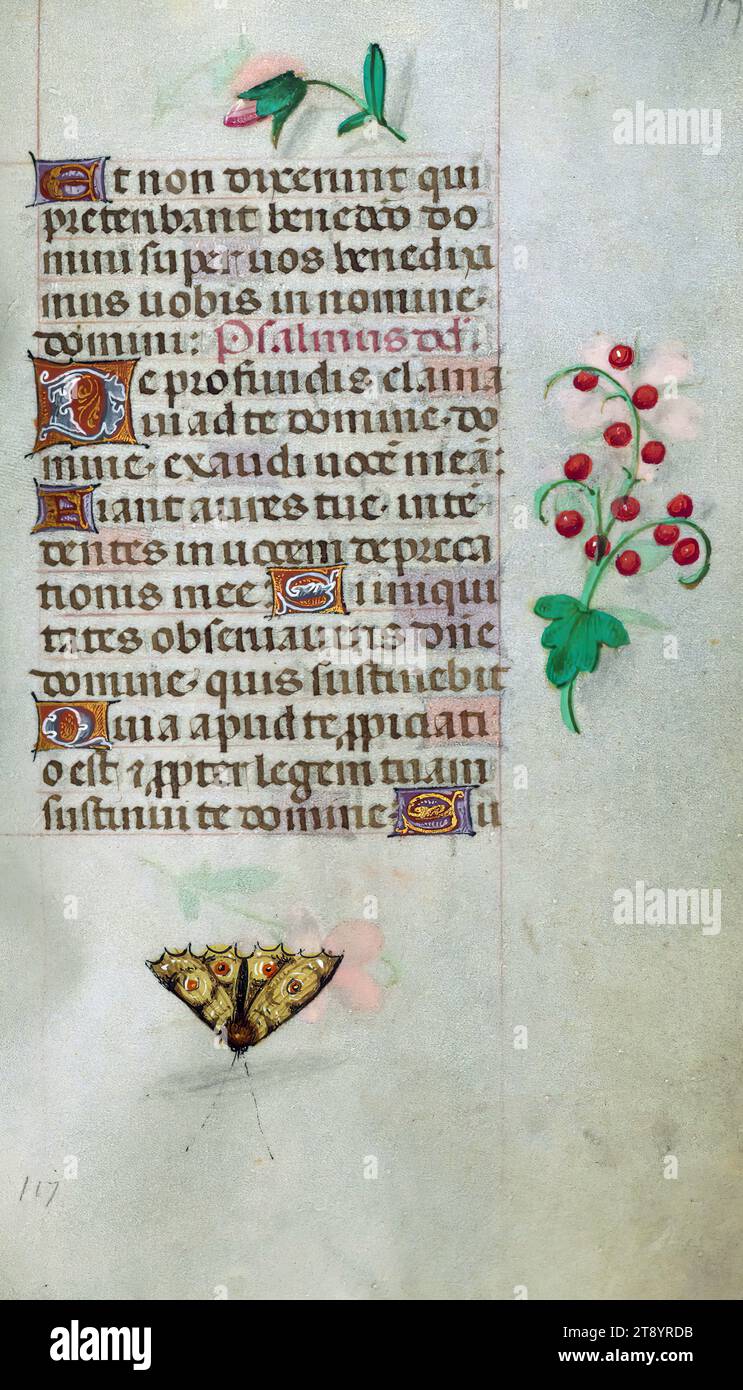 117
Et non dixerunt qui
preteribant benedictio do
mini super vos benedixi
mus vobis in nomine
domini: Psalmus dd.
De profundis clama
vi ad te domine do
mine exaudi vocē meā:
Fiant aures tue intē
dentes in vocem depreca
tionis mee Si iniqui
tates observaveris dñe
domine quis sustinebit
Quia apud te ꝓpiciati
o est ⁊ ꝓpter legem tuam
sustinui te domine Su
117
alamy
Image ID: 2T8YRDB
www.alamy.com